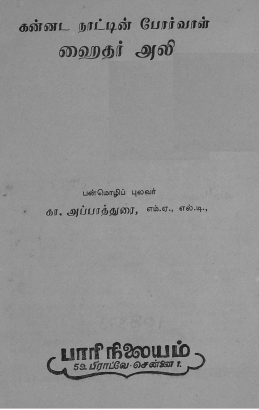 கன்னட நாட்டின் போர்வாள்
ஹைதர் அலி
பன்மொழிப் புலவர்
கா. அப்பாத்துரை, எம்.ஏ., எல்.டி.,
பாரி நிலையம்
59. பிராட்வே-சென்னை 1.